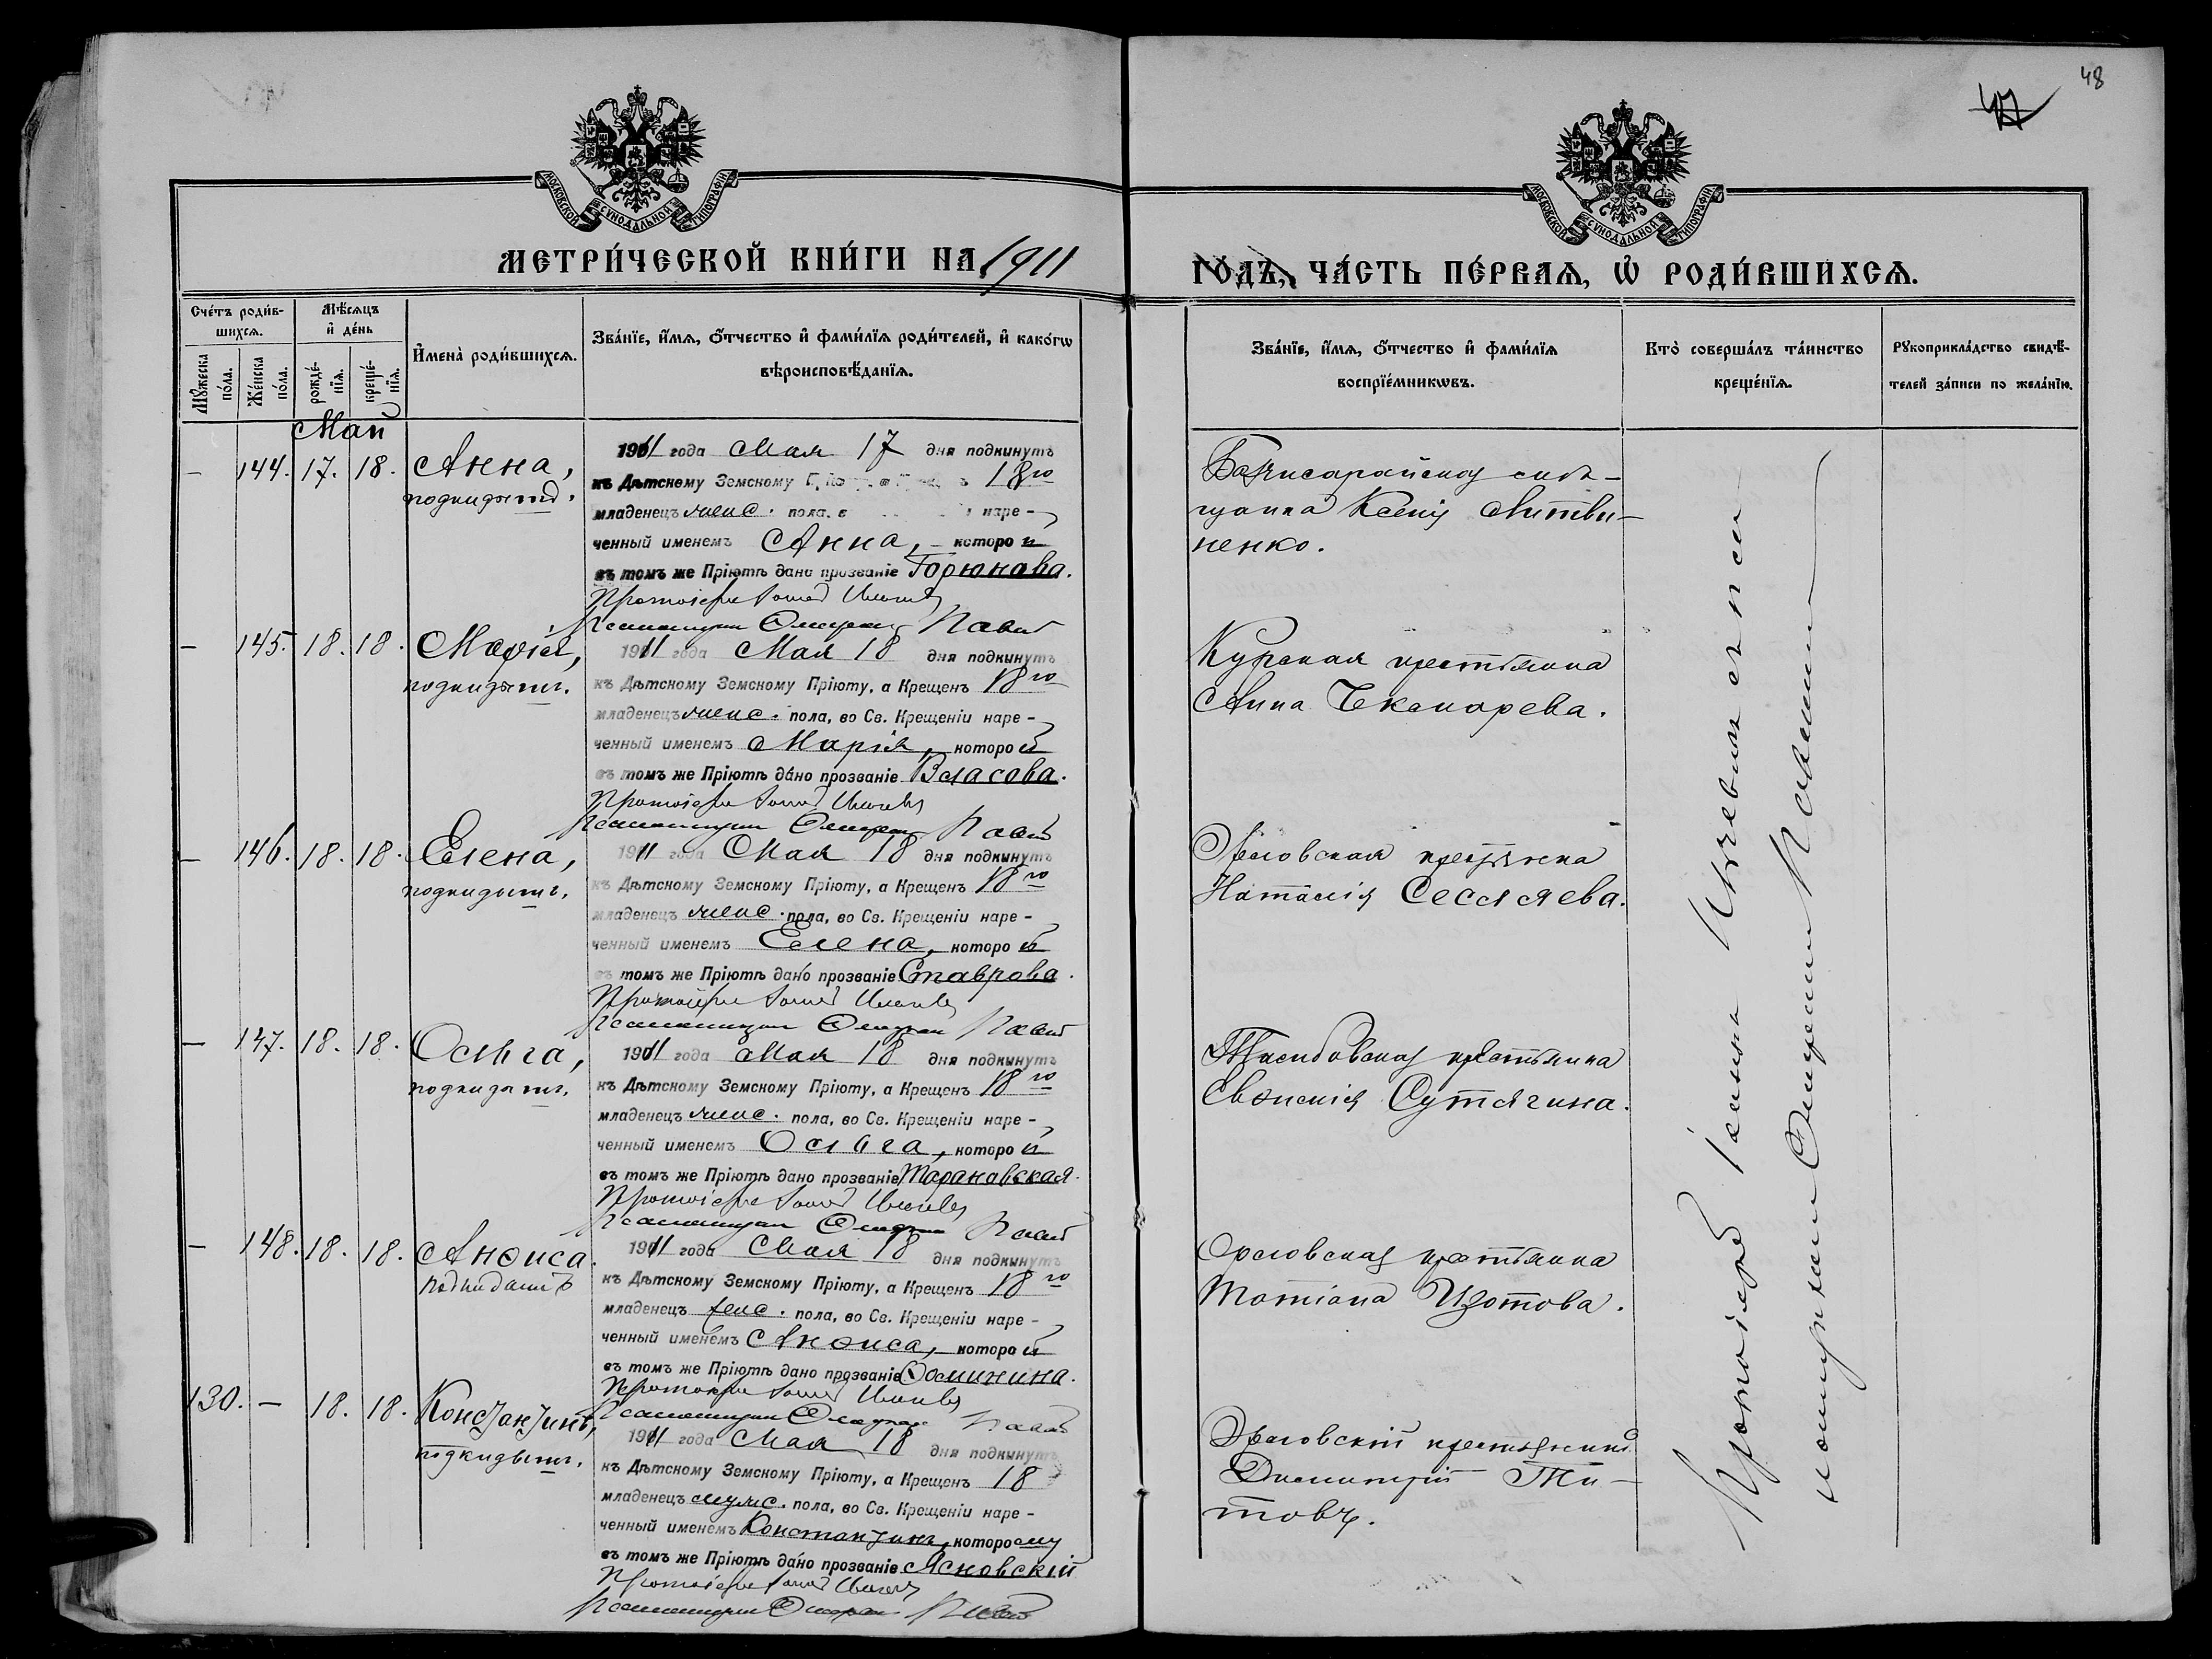 48
47
МОСКОВСКОЙ СѴНОДАЛЬНОЙ ТИПОГРАФІИ
МОСКОВСКОЙ СѴНОДАЛЬНОЙ ТИПОГРАФІИ
МЕТРИ́ЧЕСКОЙ КНИ́ГИ НА 1911
ГО́ДЪ, ЧА́СТЬ ПЕ́РВАѦ, Ѡ҆ РОДИ́ВШИХСѦ.
Сче́тъ роди́в-
шихсѧ.
Мꙋ́жеска по́ла.
Же́нска по́ла.
Мѣ́сѧцъ
и҆ де́нь
рожде́-
нїѧ.
креще́-
нїѧ.
И҆мена̀ роди́вшихсѧ.
Зва́нїе, и҆́мѧ, ѻ҆́тчество и҆ фами́лїѧ роди́телей, и҆ како́гѡ
вѣроисповѣ́данїѧ.
Зва́нїе, и҆́мѧ, ѻ҆́тчество и҆ фами́лїѧ
воспрїе́мникѡвъ.
Кто̀ соверша́лъ та́инство
креще́нїѧ.
Рꙋкоприкла́дство свидѣ́-
телей за́писи по жела́нїю.
Май
— 144. 17. 18. Анна,
подкидышъ.
1911 года Мая 17 дня подкинутъ
къ Дѣтскому Земскому 18го
младенецъ женс. пола, наре-
ченный именемъ Анна, которой
въ томъ же Пріютѣ дано прозваніе Горюнова.
Протоіерей Іоаннъ
Псаломщикъ
Бахчисарайская мѣщ-
анка Ксенія Литви-
ненко.
— 145. 18. 18. Марія,
подкидышъ.
1911 года Мая 18 дня подкинутъ
къ Дѣтскому Земскому Пріюту, а Крещенъ 18го
младенецъ женс. пола, во Св. Крещеніи наре-
ченный именемъ Марія, которой
въ томъ же Пріютѣ дано прозваніе Власова.
Протоіерей Іоаннъ
Псаломщикъ
Курская крестьянка
Анна Чекмарева.
— 146. 18. 18. Елена,
подкидышъ.
1911 года Мая 18 дня подкинутъ
къ Дѣтскому Земскому Пріюту, а Крещенъ 18го
младенецъ женс. пола, во Св. Крещеніи наре-
ченный именемъ Елена, которой
въ томъ же Пріютѣ дано прозваніе Ставрова.
Протоіерей Іоаннъ
Псаломщикъ
Орловская крестьянка
Наталія Сеселяева.
— 147. 18. 18. Ольга,
подкидышъ.
1911 года Мая 18 дня подкинутъ
къ Дѣтскому Земскому Пріюту, а Крещенъ 18го
младенецъ женс. пола, во Св. Крещеніи наре-
ченный именемъ Ольга, которой
въ томъ же Пріютѣ дано прозваніе Тарановская.
Протоіерей Іоаннъ
Псаломщикъ
Тамбовская крестьянка
Евфимія Сутягина.
— 148. 18. 18. Анфиса.
подкидышъ
1911 года Мая 18 дня подкинутъ
къ Дѣтскому Земскому Пріюту, а Крещенъ 18го
младенецъ женс. пола, во Св. Крещеніи наре-
ченный именемъ Анфиса, которой
въ томъ же Пріютѣ дано прозваніе Осминина.
Протоіерей Іоаннъ
Псаломщикъ
Орловская крестьянка
Татіана Изотова.
130. — 18. 18. Константинъ,
подкидышъ.
1911 года Мая 18 дня подкинутъ
къ Дѣтскому Земскому Пріюту, а Крещенъ 18
младенецъ мужс. пола, во Св. Крещеніи наре-
ченный именемъ Константинъ, которому
въ томъ же Пріютѣ дано прозваніе Ясновскій
Протоіерей Іоаннъ
Псаломщикъ
Орловскій крестьянинъ
Димитрій Ти-
товъ.
Протоіерей Іоаннъ